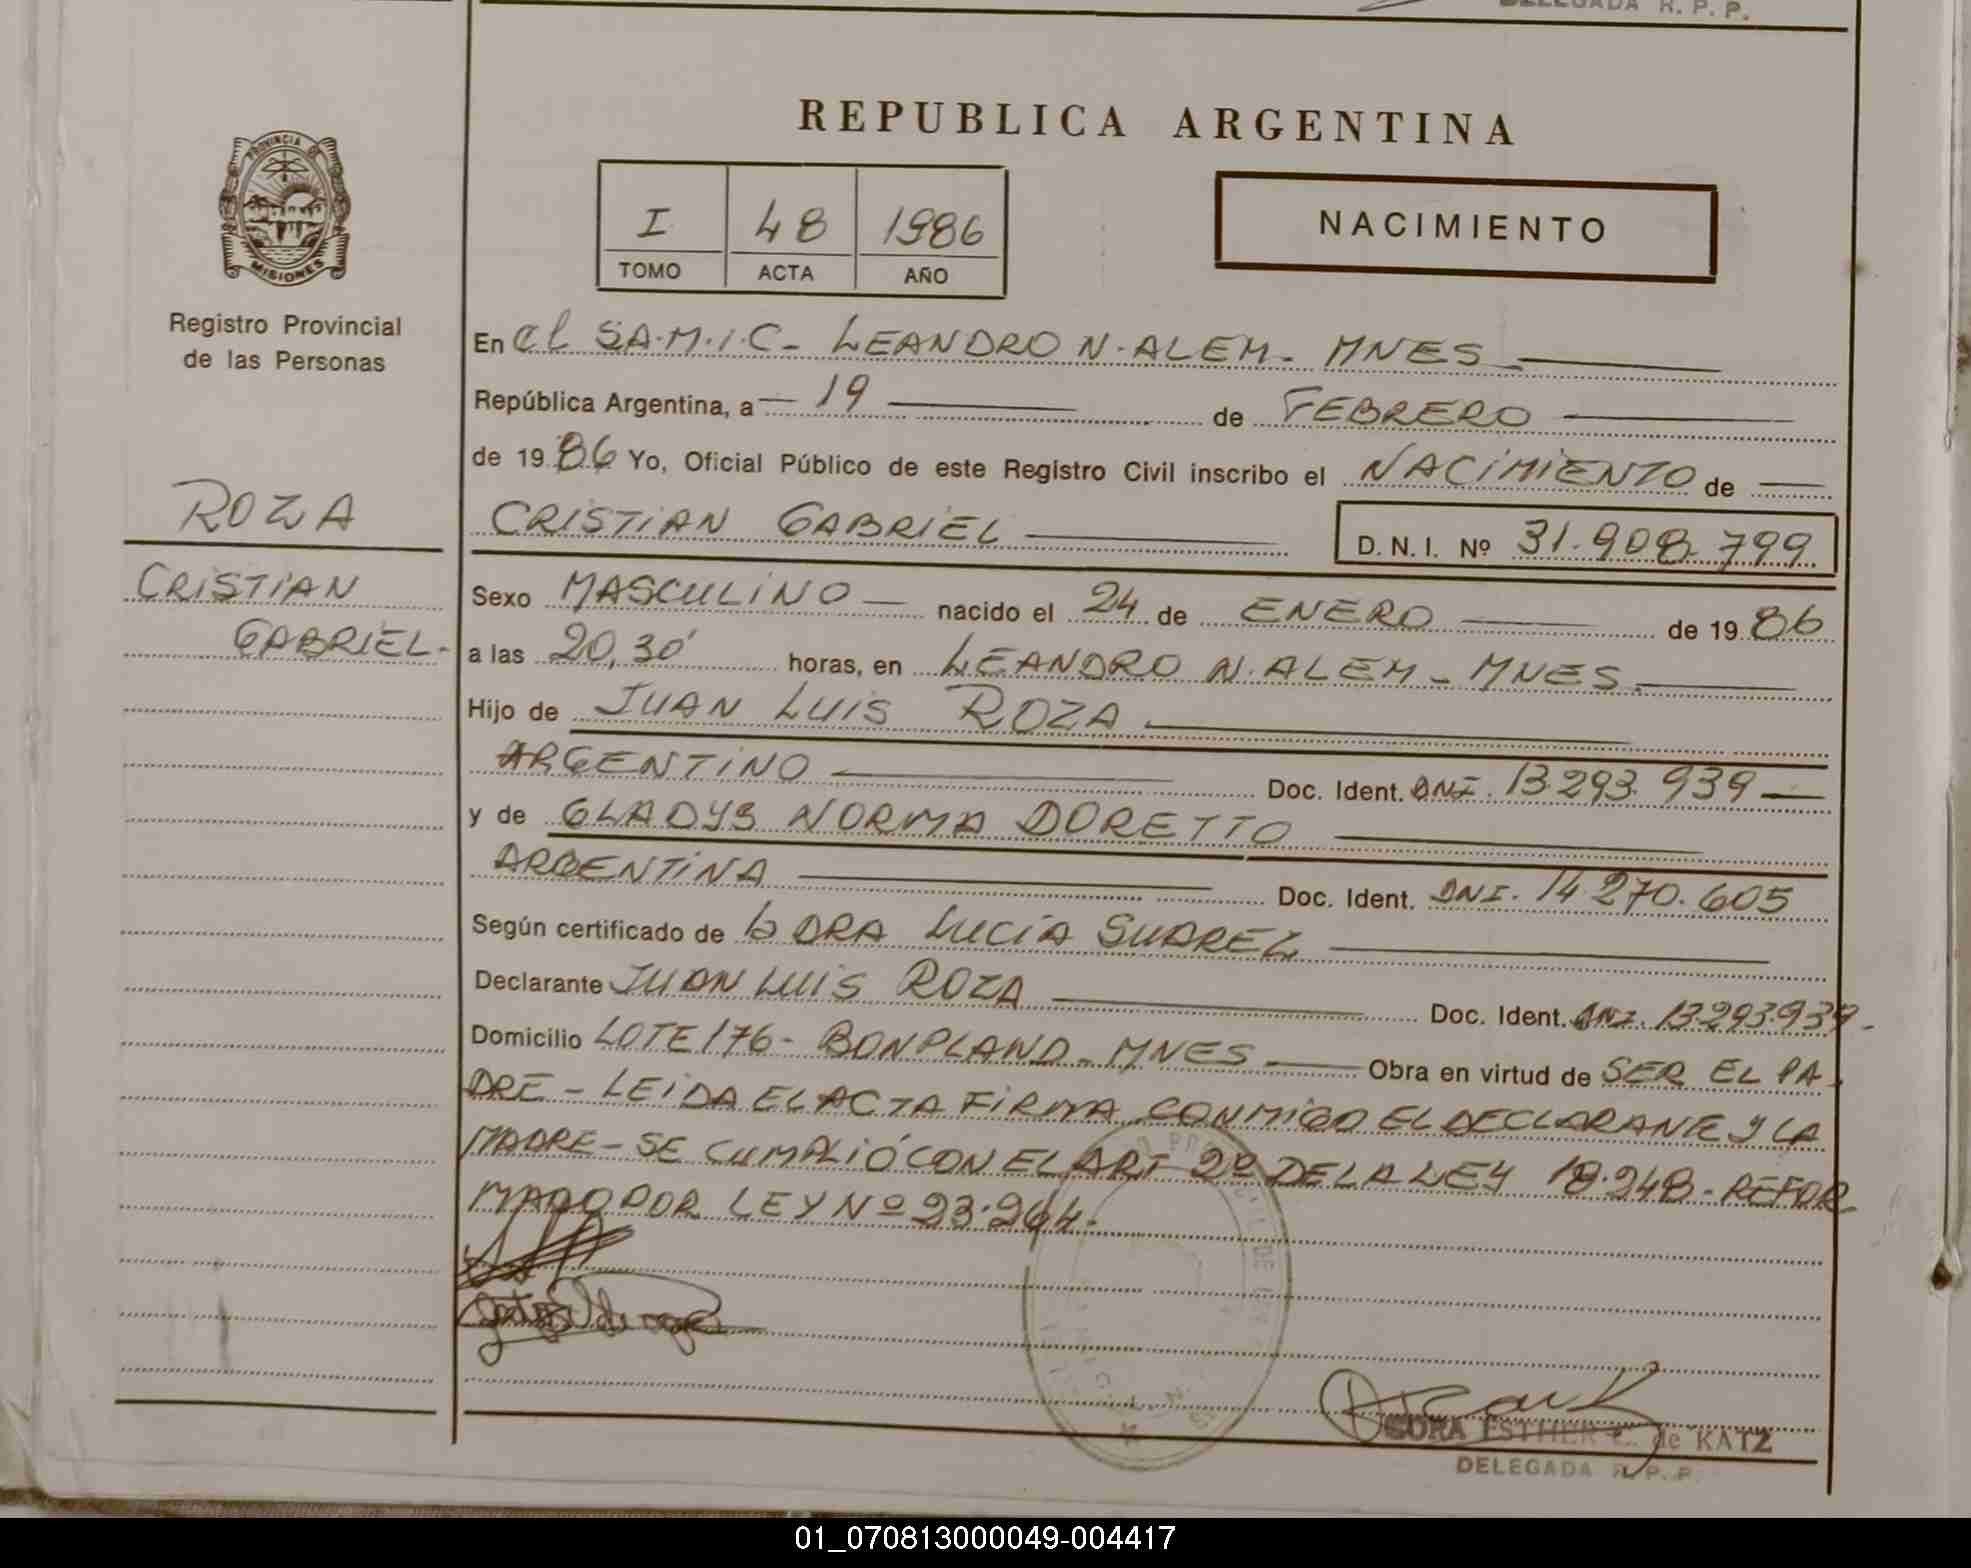 DELEGADA R. P. P.
REPUBLICA ARGENTINA
PROVINCIA DE
MISIONES
Registro Provincial
de las Personas
I 48 1986
TOMO ACTA AÑO
NACIMIENTO
En el S.A.M.I.C- LEANDRO N. ALEM- MNES
República Argentina, a 19 de FEBRERO
de 1986 Yo, Oficial Público de este Registro Civil inscribo el NACIMIENTO de
ROZA
CRISTIAN GABRIEL
D.N.I. Nº 31.908.799
CRISTIAN
GABRIEL-
Sexo MASCULINO nacido el 24 de ENERO de 1986
a las 20,30 horas, en LEANDRO N. ALEM - MNES.
Hijo de JUAN LUIS ROZA
ARGENTINO Doc. Ident. DNI. 13.293.939
y de GLADYS NORMA DORETTO
ARGENTINA Doc. Ident. DNI. 14.270.605
Según certificado de la DRA LUCIA SUAREZ
Declarante JUAN LUIS ROZA Doc. Ident. DNI. 13.293.939-
Domicilio LOTE 176- BONPLAND - MNES Obra en virtud de SER EL PA-
DRE - LEIDA EL ACTA FIRMA CONMIGO EL DECLARANTE Y LA
MADRE - SE CUMPLIÓ CON EL ART 2º DE LA LEY 18.248 - REFOR
MADO POR LEY Nº 23.264.
SORA ESTHER E. de KATZ
DELEGADA R. P. P.
01_070813000049-004417